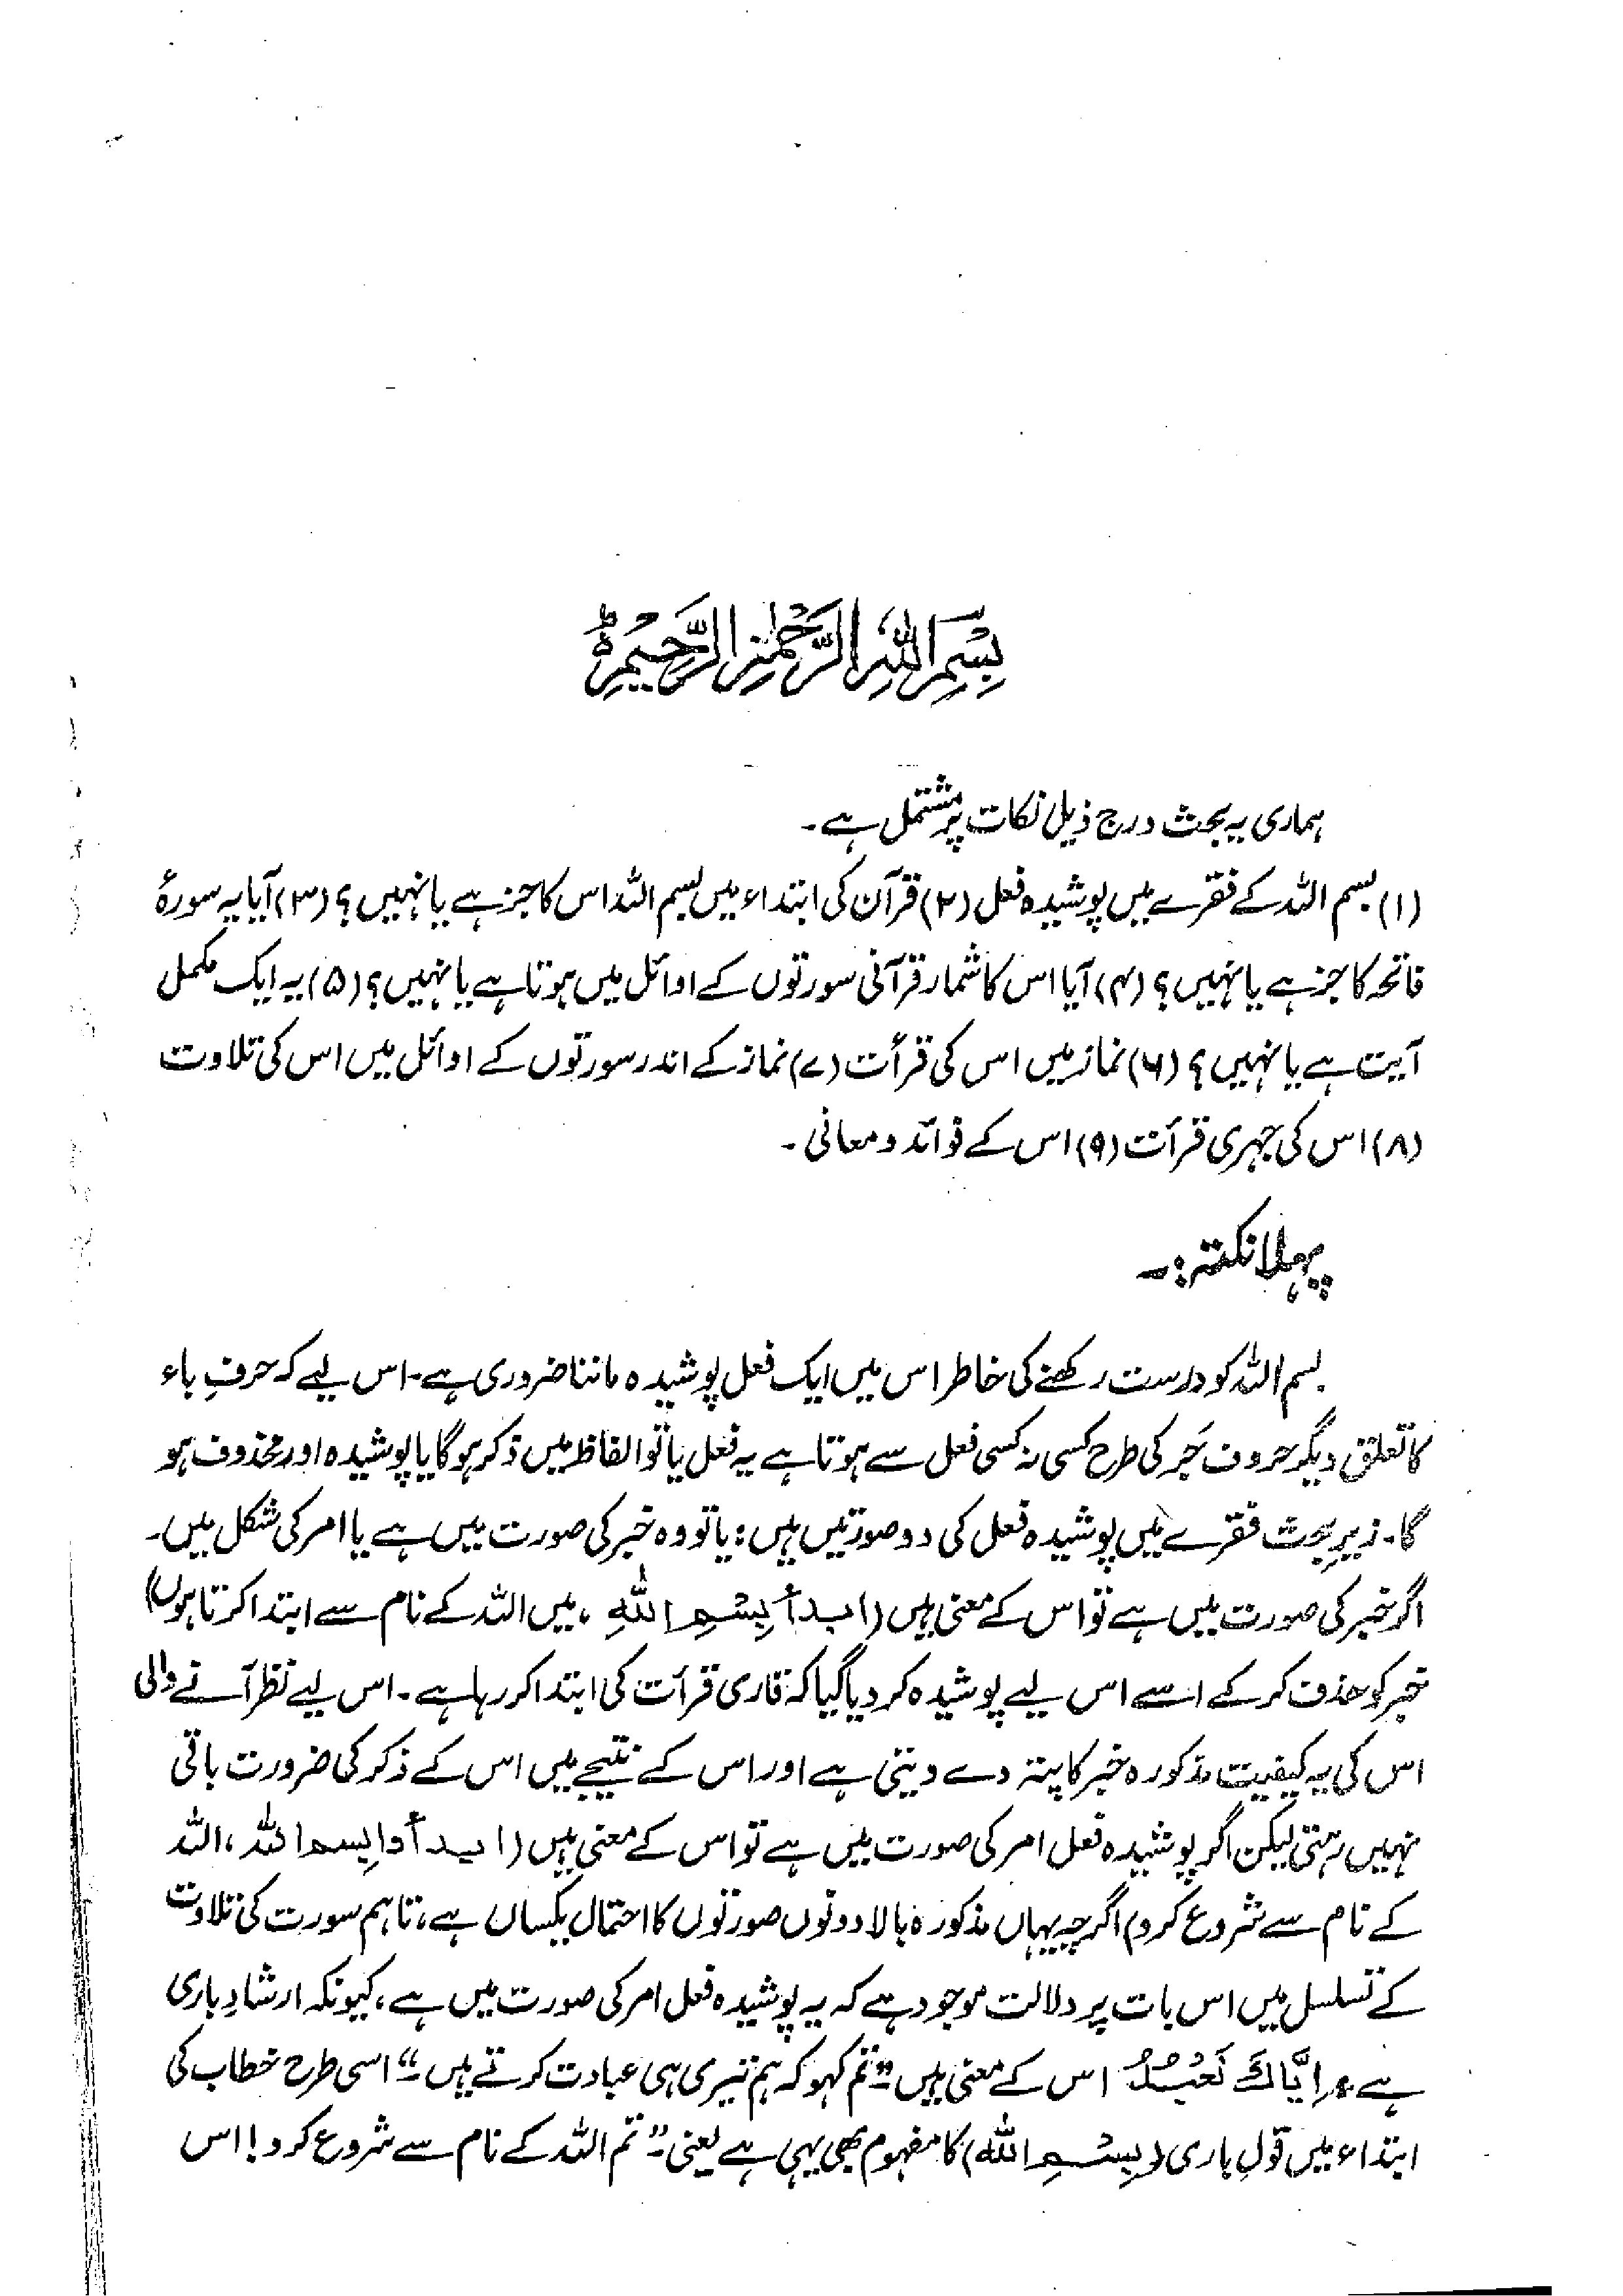 بِسْمِ اللّٰهِ الرَّحْمٰنِ الرَّحِيْمِ ط
ہماری یہ بحث درج ذیل نکات پر مشتمل ہے۔
(۱) بسم اللہ کے فقرے میں پوشیدہ فعل (۲) قرآن کی ابتداء میں بسم اللہ اس کا جز ہے یا نہیں؟ (۳) آیا یہ سورۂ
فاتحہ کا جز ہے یا نہیں؟ (۴) آیا اس کا شمار قرآنی سورتوں کے اوائل میں ہوتا ہے یا نہیں؟ (۵) یہ ایک مکمل
آیت ہے یا نہیں؟ (۶) نماز میں اس کی قرأت (۷) نماز کے اندر سورتوں کے اوائل میں اس کی تلاوت
(۸) اس کی جہری قرأت (۹) اس کے فوائد و معانی۔
پہلا نکتہ:۔
بسم اللہ کو درست رکھنے کی خاطر اس میں ایک فعل پوشیدہ ماننا ضروری ہے۔ اس لیے کہ حرفِ باء
کا تعلق دیگر حروف جَر کی طرح کسی نہ کسی فعل سے ہوتا ہے یہ فعل یا تو الفاظ میں ذکر ہو گا یا پوشیدہ اور محذوف ہو
گا۔ زیرِ بحث فقرے میں پوشیدہ فعل کی دو صورتیں ہیں: یا تو وہ خبر کی صورت میں ہے یا امر کی شکل میں۔
اگر خبر کی صورت میں ہے تو اس کے معنی ہیں (ابدأ بِسْمِ اللّٰهِ، میں اللہ کے نام سے ابتدا کرتا ہوں)
خبر کو حذف کر کے اسے اس لیے پوشیدہ کر دیا گیا کہ قاری قرأت کی ابتدا کر رہا ہے۔ اس لیے نظر آنے والی
اس کی یہ کیفیت مذکورہ خبر کا پتہ دے دیتی ہے اور اس کے نتیجے میں اس کے ذکر کی ضرورت باقی
نہیں رہتی لیکن اگر پوشیدہ فعل امر کی صورت میں ہے تو اس کے معنی ہیں (ابدأوا بِسم اللہ، اللہ
کے نام سے شروع کرو) اگرچہ یہاں مذکورہ بالا دونوں صورتوں کا احتمال یکساں ہے، تاہم سورت کی تلاوت
کے تسلسل میں اس بات پر دلالت موجود ہے کہ یہ پوشیدہ فعل امر کی صورت میں ہے، کیونکہ ارشادِ باری
ہے، اِيَّاكَ نَعْبُدُ اس کے معنی ہیں "تم کہو کہ ہم تیری ہی عبادت کرتے ہیں۔" اسی طرح خطاب کی
ابتداء میں قولِ باری (بِسْمِ اللّٰه) کا مفہوم بھی یہی ہے یعنی۔ "تم اللہ کے نام سے شروع کرو! اس